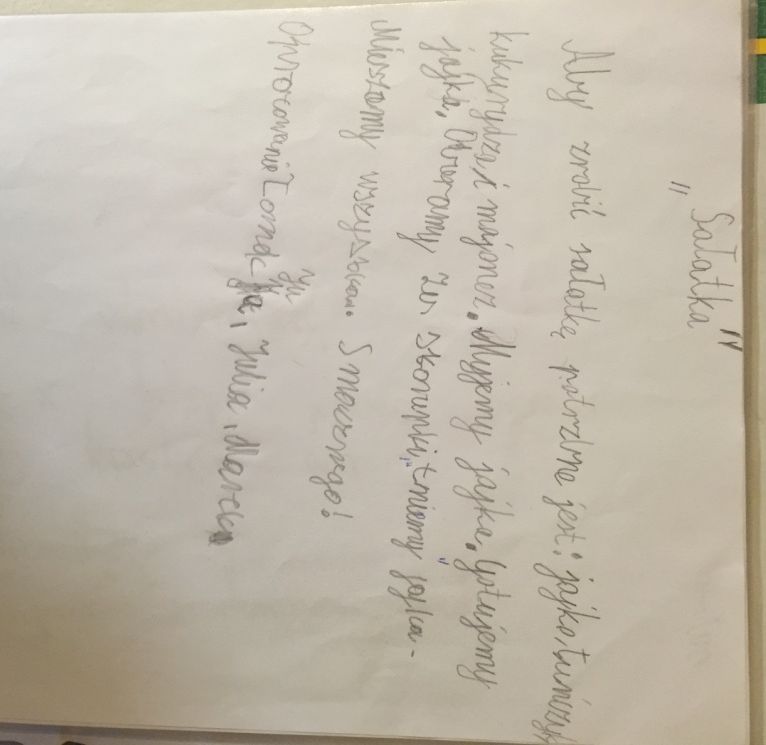 „Sałatka"
Aby zrobić sałatkę potrzbne jest: jajko, tuńczyk
kukurydza i majonez. Myjemy jajka, gotujemy
jajka. Obieramy ze skorupki, tniemy jajka.
Mieszamy wszystko. Smacznego!
Opracowanie Tomek, Julia, Marek